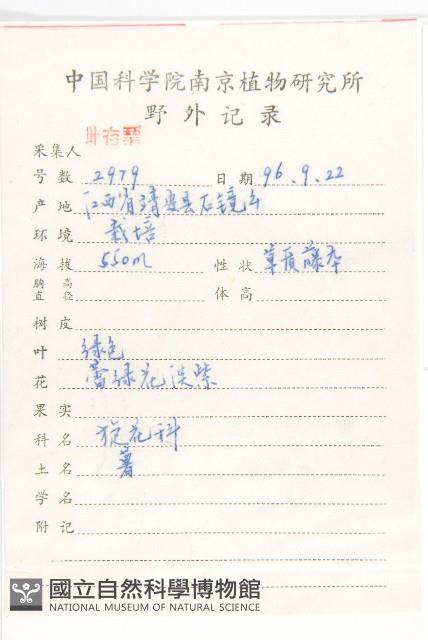 中国科学院南京植物研究所
野外记录
采集人 叶存粟
号数 2979 日期 96.9.22
产地 江西省靖安县石镜乡
环境 栽培
海拔 550m 性状 草质藤本
胸高直径 体高
树皮
叶 绿色
花 蕾绿花淡紫
果实
科名 旋花科
土名 薯
学名
附记
國立自然科學博物館
NATIONAL MUSEUM OF NATURAL SCIENCE